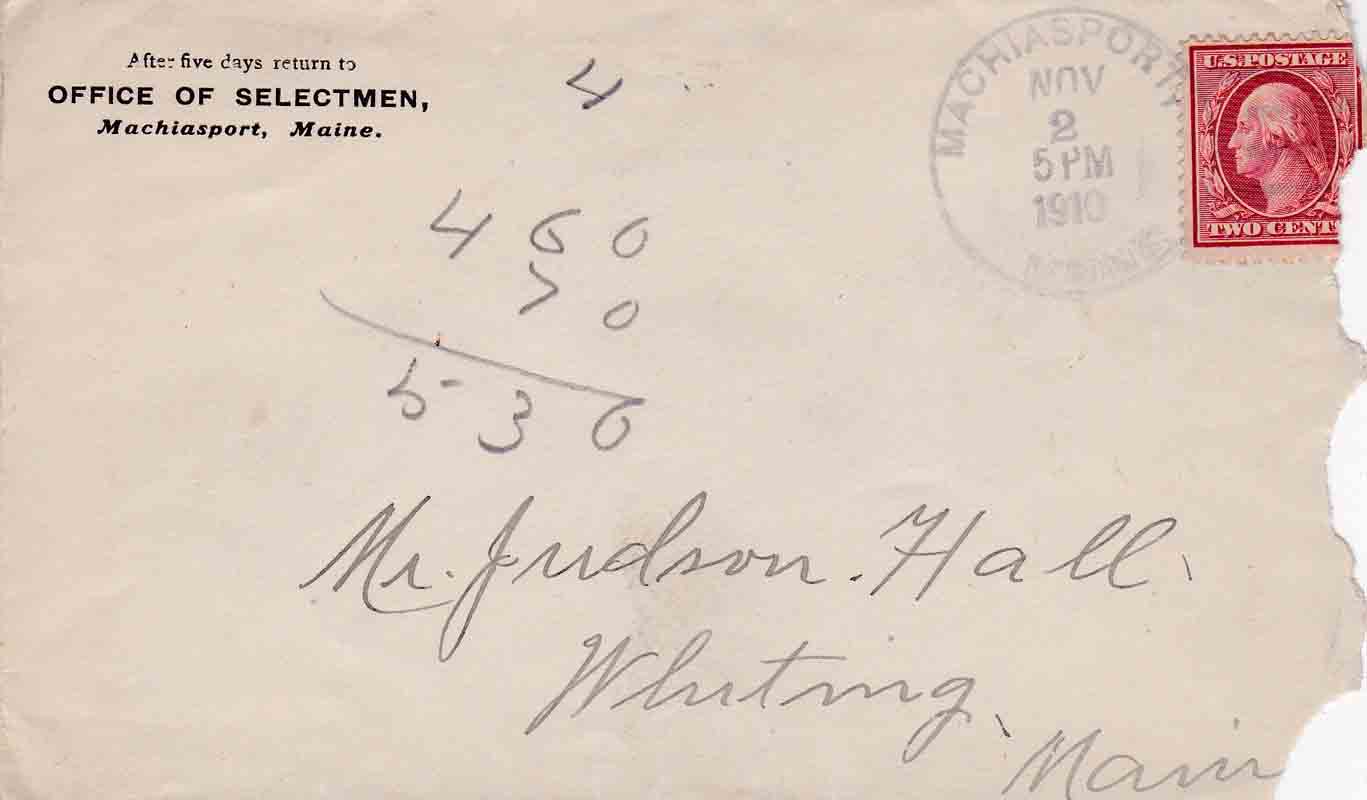 After five days return to
OFFICE OF SELECTMEN,
Machiasport, Maine.
4
MACHIASPORT
NOV
2
5 PM
1910
MAINE
U.S. POSTAGE
TWO CENT
460
70
530
Mr. Judson Hall.
Whiting,
Main